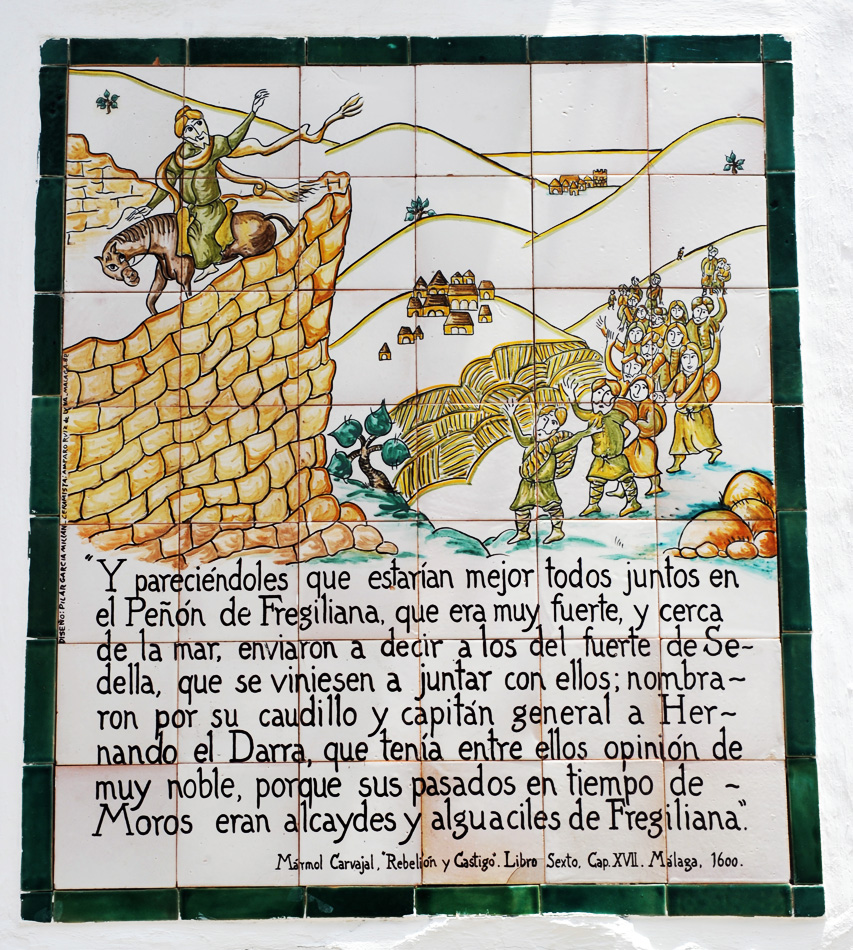 "Y pareciéndoles que estarían mejor todos juntos en
el Peñón de Fregiliana, que era muy fuerte, y cerca
de la mar, enviaron a decir a los del fuerte de Se~
della, que se viniesen a juntar con ellos; nombra~
ron por su caudillo y capitán general a Her~
nando el Darra, que tenía entre ellos opinión de
muy noble, porque sus pasados en tiempo de ~
Moros eran alcaydes y alguaciles de Fregiliana."
Mármol Carvajal, "Rebelión y Castigo". Libro Sexto, Cap. XVII. Málaga, 1600.
DISEÑO: PILAR GARCIA MILLAN. CERAMISTA: AMPARO RUIZ de LUNA. MALAGA